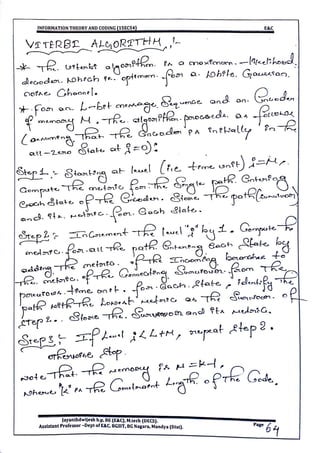 INFORMATION THEORY AND CODING (15EC54) E&C
VITERBI ALGORITHM :-
* The Viterbi algorithm is a maximum-likelihood
decoder which is optimum for a White Gaussian
noise Channel.
* For an L-bit message Sequence and an Encoder
of memory M, The algorithm proceeds as follows
(assuming That The Encoder is initially in The
all-zero State at j=0):
Step1:- Starting at level (ie time unit) j=M,
Compute The metric for The Single path Entering
Each State of The Encoder. Store The path (survivor)
and its metric for Each State.
Step2:- Increment The level "j" by 1. Compute The
metric for all The path Entering Each State by
adding The metric of The Incoming branches to
The metric of The Connecting Survivor from The
previous time unit. for Each State, identify The
path with The Lowest metric as The Survivor of
Step2. Store The Survivor and its metric.
Step3:- If level j<L+M, repeat step2.
otherwise stop.
Note That The memory is M=K-1,
where "K" is The Constraint Length of The Code.
Jayanthdwijesh h.p, BE (E&C), M.tech (DECS).
Assistant Professor -Dept of E&C, BGSIT, BG Nagara, Mandya (Dist). Page 64